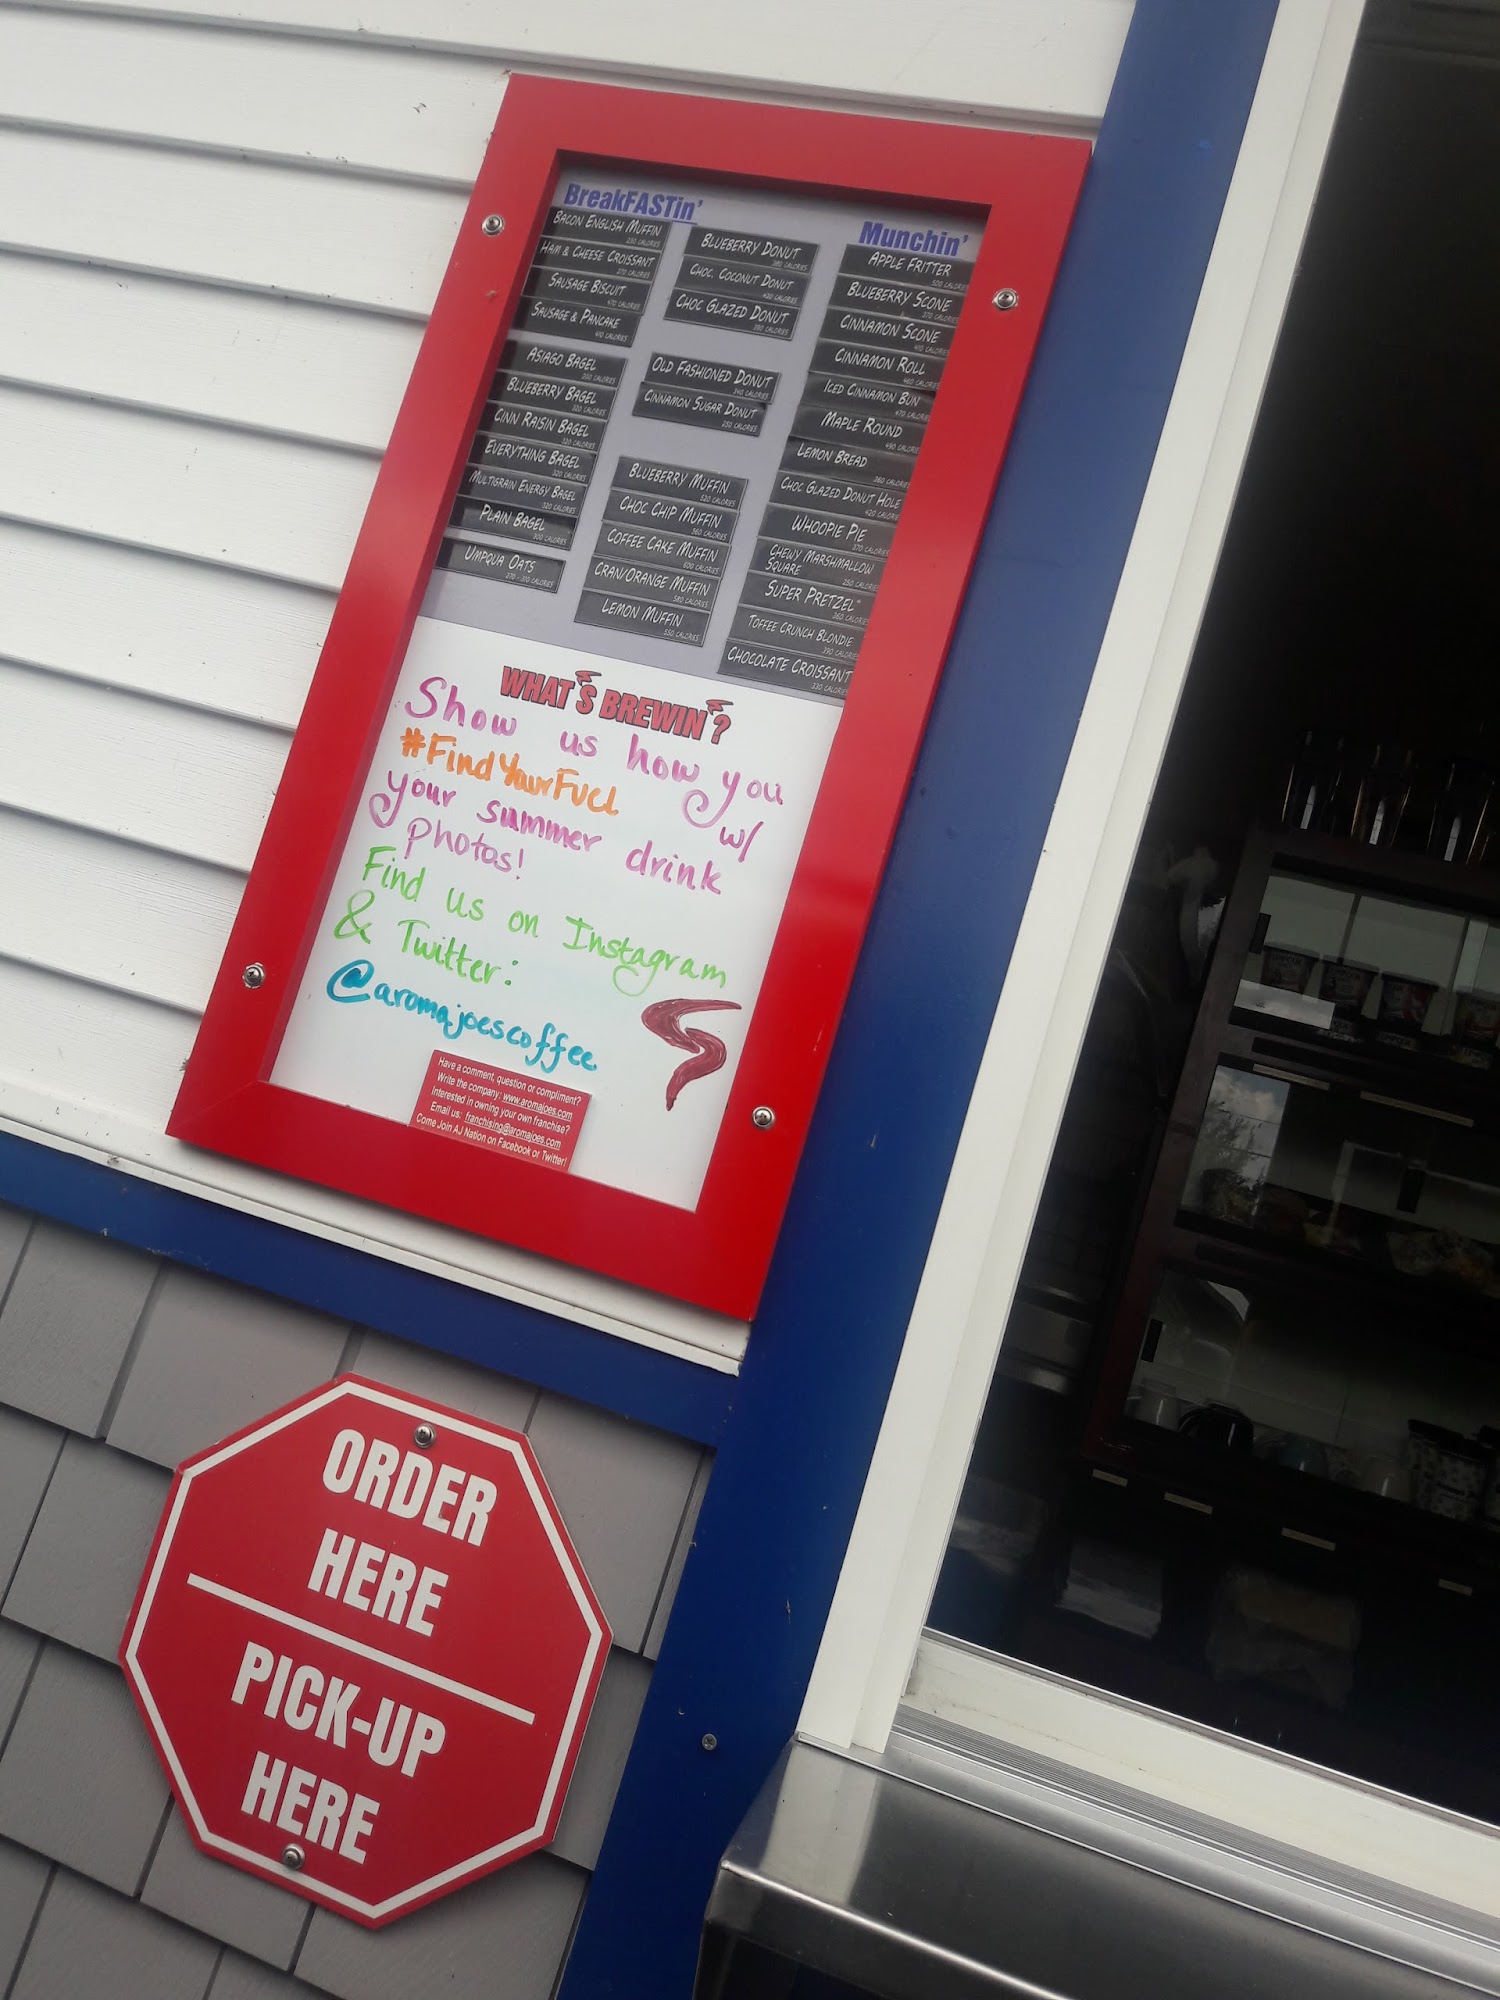 BreakFASTin'
BACON ENGLISH MUFFIN
HAM & CHEESE CROISSANT
SAUSAGE BISCUIT
SAUSAGE & PANCAKE
ASIAGO BAGEL
BLUEBERRY BAGEL
CINN RAISIN BAGEL
EVERYTHING BAGEL
MULTIGRAIN ENERGY BAGEL
PLAIN BAGEL
UMPQUA OATS
BLUEBERRY DONUT
CHOC. COCONUT DONUT
CHOC GLAZED DONUT
OLD FASHIONED DONUT
CINNAMON SUGAR DONUT
BLUEBERRY MUFFIN
520 CALORIES
CHOC CHIP MUFFIN
560 CALORIES
COFFEE CAKE MUFFIN
600 CALORIES
CRAN/ORANGE MUFFIN
580 CALORIES
LEMON MUFFIN
550 CALORIES
Munchin'
APPLE FRITTER
500 CALORIES
BLUEBERRY SCONE
370 CALORIES
CINNAMON SCONE
CINNAMON ROLL
ICED CINNAMON BUN
470 CALORIES
MAPLE ROUND
490 CALORIES
LEMON BREAD
360 CALORIES
CHOC GLAZED DONUT HOLE
420 CALORIES
WHOOPIE PIE
370 CALORIES
CHEWY MARSHMALLOW
SQUARE
250 CALORIES
SUPER PRETZEL
360 CALORIES
TOFFEE CRUNCH BLONDIE
390 CALORIES
CHOCOLATE CROISSANT
330 CALORIES
WHAT'S BREWIN'?
Show us how you
#FindYourFuel w/
your summer drink
photos!
Find us on Instagram
& Twitter:
@aromajoescoffee
Have a comment, question or compliment?
Write the company: www.aromajoes.com
Interested in owning your own franchise?
Email us: franchising@aromajoes.com
Come Join AJ Nation on Facebook or Twitter!
ORDER
HERE
PICK-UP
HERE